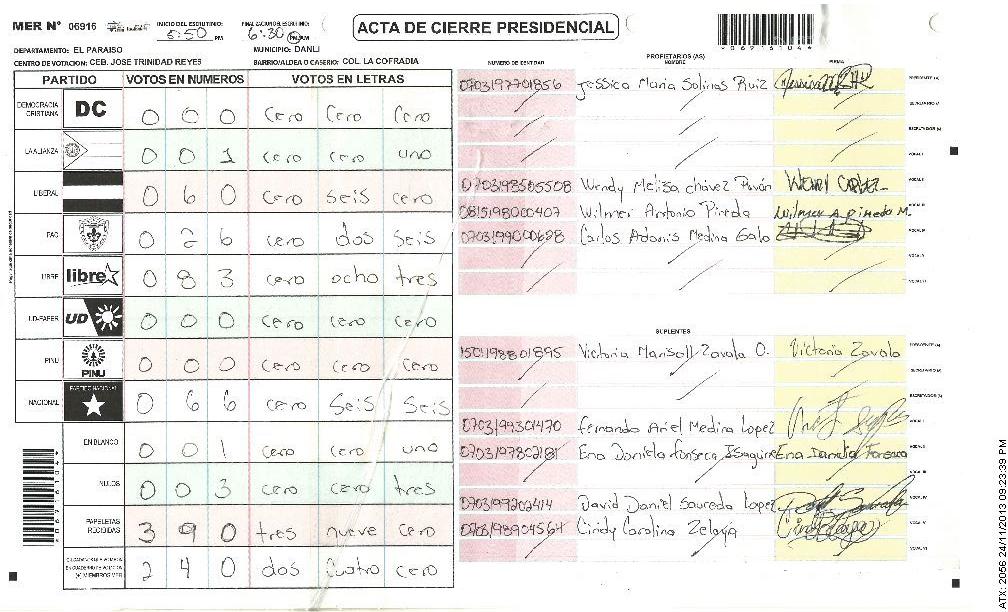 MER N° 06916
INICIO DEL ESCRUTINIO:
5:50 PM
FINALIZACION DEL ESCRUTINIO:
6:30 PM AM
ACTA DE CIERRE PRESIDENCIAL
0 6 9 1 6 1 0 4 4
DEPARTAMENTO: EL PARAISO
MUNICIPIO: DANLI
CENTRO DE VOTACION: CEB. JOSE TRINIDAD REYES
BARRIO/ALDEA O CASERIO: COL. LA COFRADIA
PARTIDO VOTOS EN NUMEROS VOTOS EN LETRAS
DEMOCRACIA CRISTIANA DC 0 0 0 cero cero cero
LA ALIANZA 0 0 1 cero cero uno
LIBERAL 0 6 0 cero seis cero
PAC 0 2 6 cero dos seis
LIBRE libre 0 8 3 cero ocho tres
UD-FAPER UD 0 0 0 cero cero cero
PINU PINU 0 0 0 cero cero cero
NACIONAL PARTIDO NACIONAL 0 6 6 cero seis seis
EN BLANCO 0 0 1 cero cero uno
NULOS 0 0 3 cero cero tres
PAPELETAS RECIBIDAS 3 9 0 tres nueve cero
2 4 0 dos cuatro cero
(+) MIEMBROS MER
PROPIETARIOS (AS)
NUMERO DE IDENTIDAD NOMBRE FIRMA
0703197701856 Jessica Maria Salinas Ruiz PRESIDENTE (A)
SECRETARIO (A)
ESCRUTADOR (A)
VOCAL I
0703198505508 Wendy Melisa chavez Pavón VOCAL II
0815198000407 Wilmer Antonio Pineda Wilmer A pineda M. VOCAL III
0703199000628 Carlos Adonis Medina Galo VOCAL IV
VOCAL V
VOCAL VI
SUPLENTES
1501198801895 Victoria Marisoll Zavala O. Victoria Zavala PRESIDENTE (A)
SECRETARIO (A)
ESCRUTADOR (A)
0703199301470 Fernando Ariel Medina Lopez VOCAL I
0703197802181 Ena Daniela Fonseca Isaguirre Ena Daniela Fonseca VOCAL II
VOCAL III
0703199202414 David Daniel Sauceda Lopez VOCAL IV
0703198904564 Cindy Carolina Zelaya VOCAL V
VOCAL VI
ATX: 2056 24/11/2013 09:23:39 PM